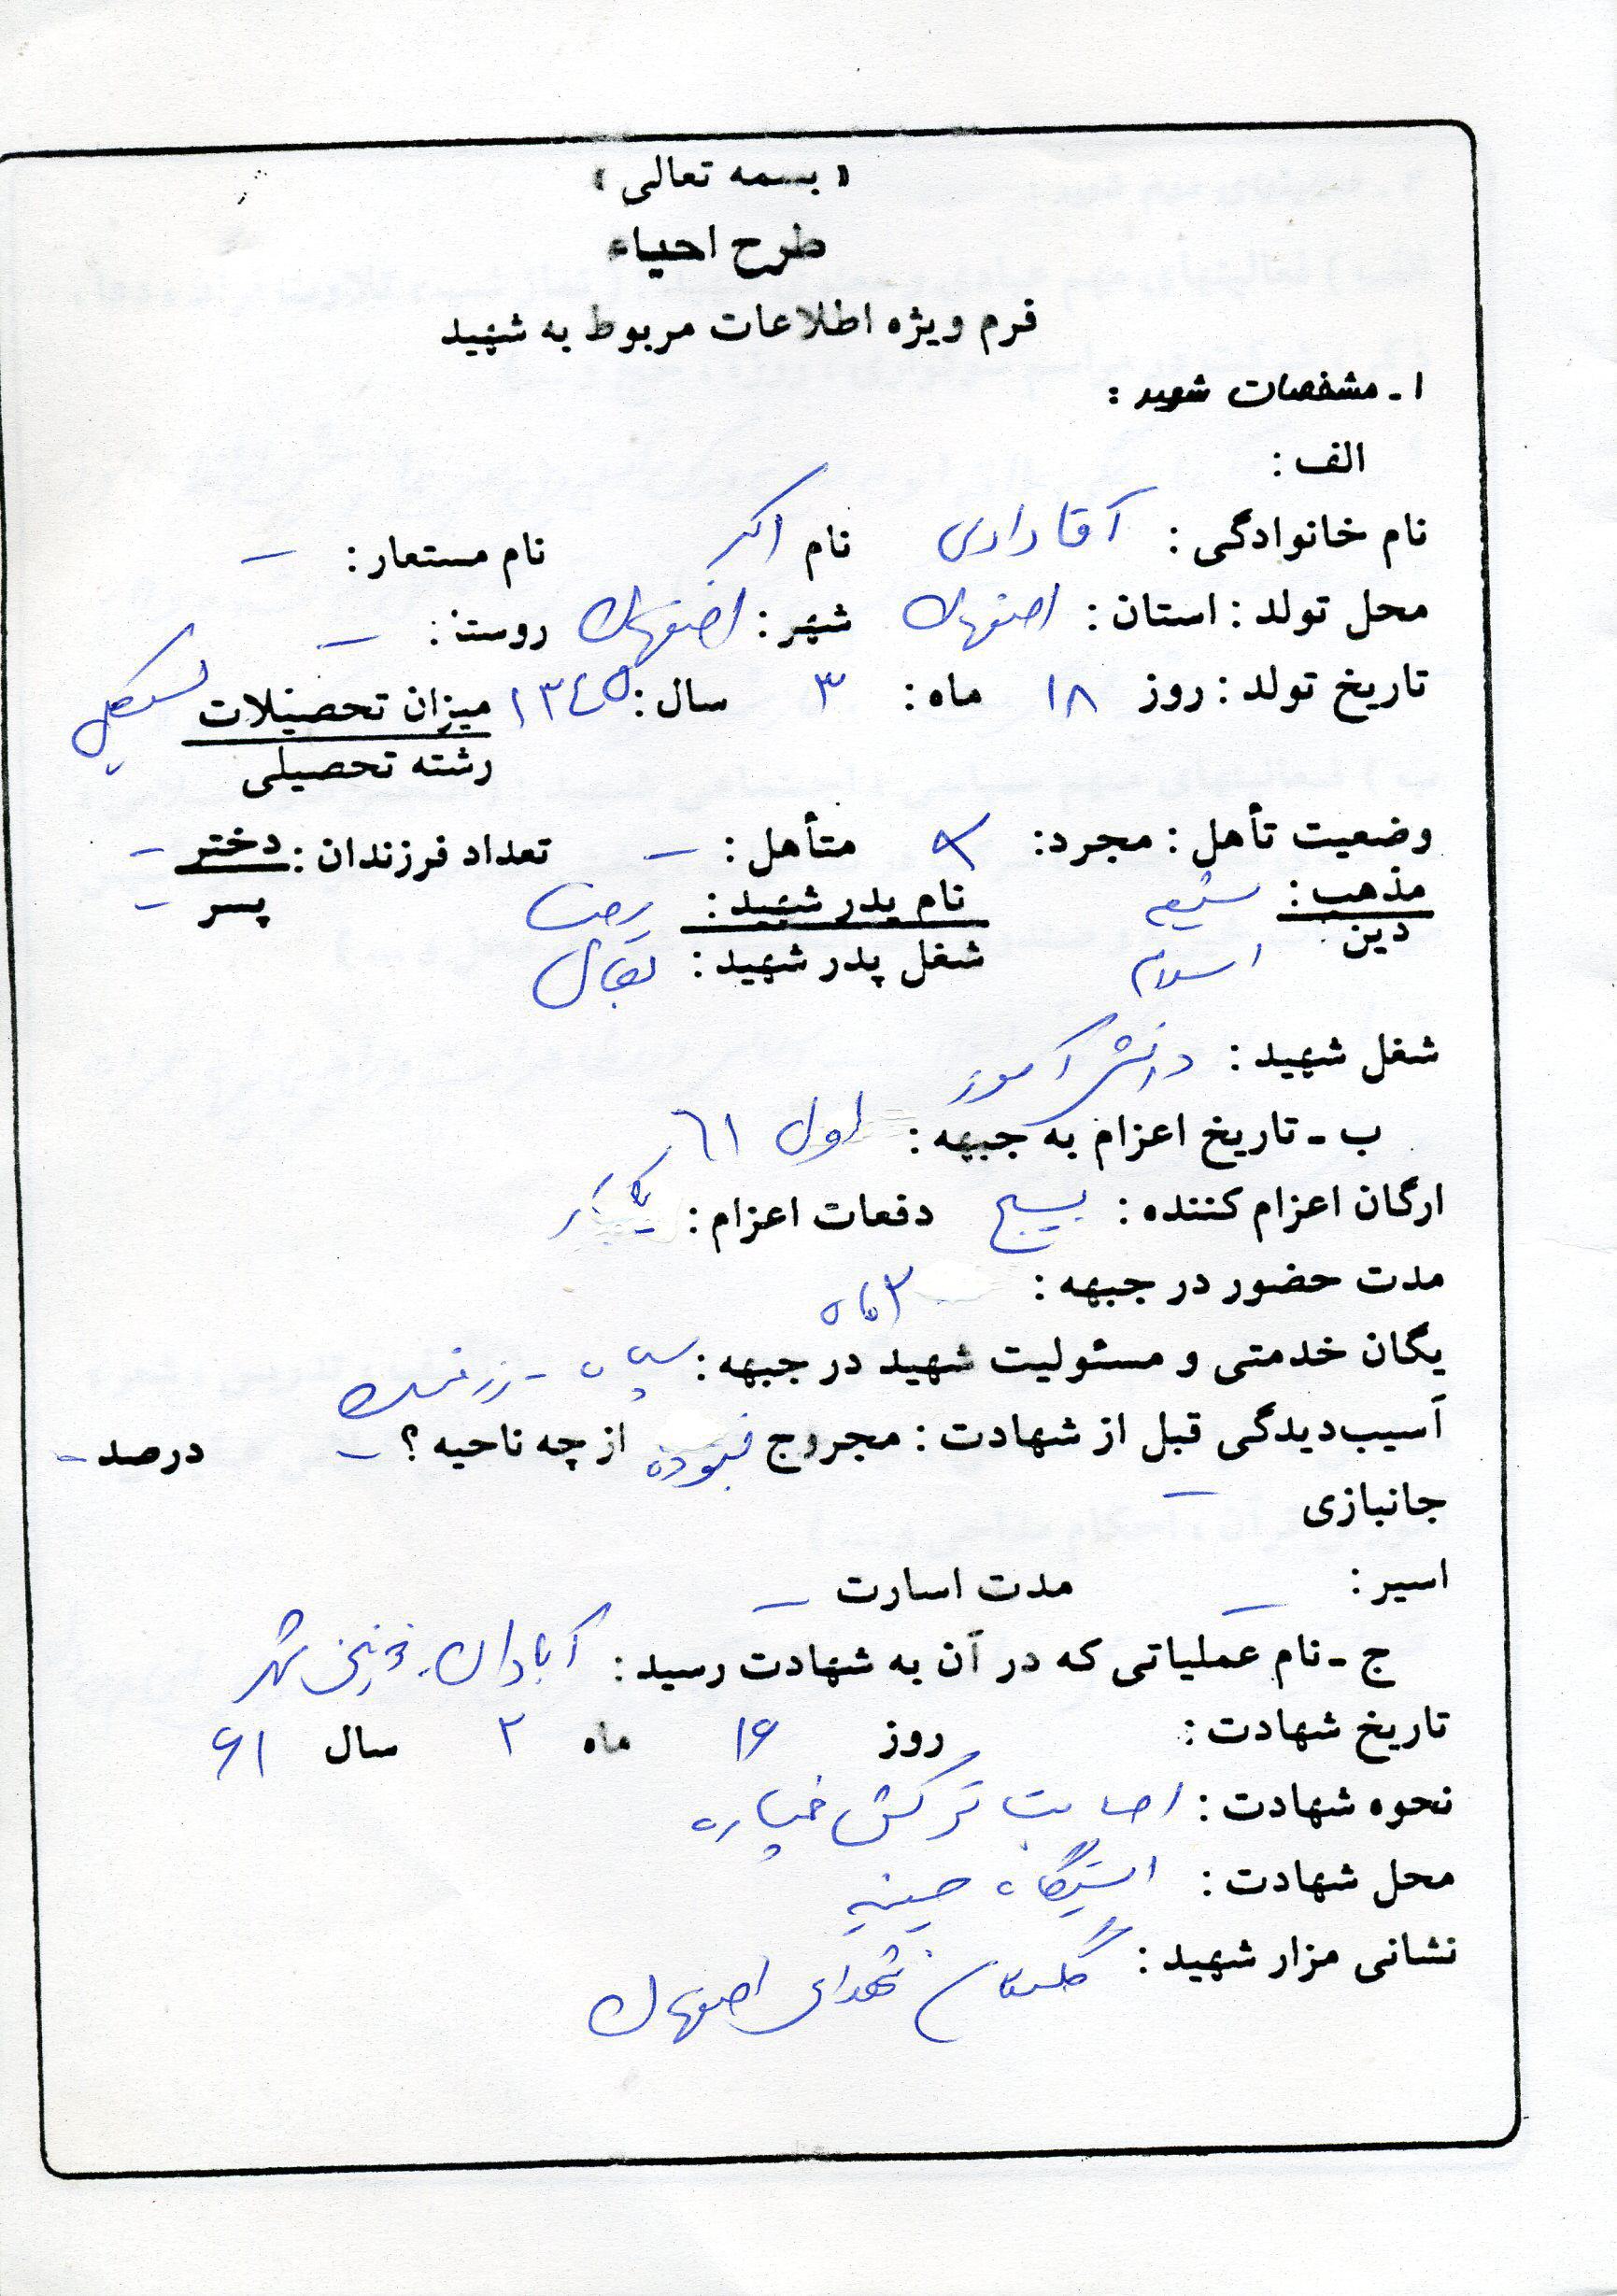 « بسمه تعالی »
طرح احیاء
فرم ویژه اطلاعات مربوط به شهید
۱ـ مشخصات شهید :
الف :
نام خانوادگی : آقادادی نام اکبر نام مستعار : –
محل تولد : استان : اصفهان شهر : اصفهان روستا : –
تاریخ تولد : روز ۱۸ ماه : ۳ سال : ۱۳٤۵ میزان تحصیلات
رشته تحصیلی
وضعیت تأهل : مجرد : × متأهل : – تعداد فرزندان : دختر –
پسر –
مذهب : شیعه نام پدر شهید :
دین اسلام شغل پدر شهید : بقال
شغل شهید : دانش آموز
ب ـ تاریخ اعزام به جبهه : اول ٦۱
ارگان اعزام کننده : بسیج دفعات اعزام : یکبار
مدت حضور در جبهه : ۳ ماه
یگان خدمتی و مسئولیت شهید در جبهه : سپاه - رزمنده
آسیب‌دیدگی قبل از شهادت : مجروح نبوده از چه ناحیه ؟ – درصد –
جانبازی –
اسیر : – مدت اسارت –
ج ـ نام عملیاتی که در آن به شهادت رسید : آبادان - خونین شهر
تاریخ شهادت : روز ۱۶ ماه ۲ سال ۶۱
نحوه شهادت : اصابت ترکش خمپاره
محل شهادت : ایستگاه حسینیه
نشانی مزار شهید : گلستان شهدای اصفهان